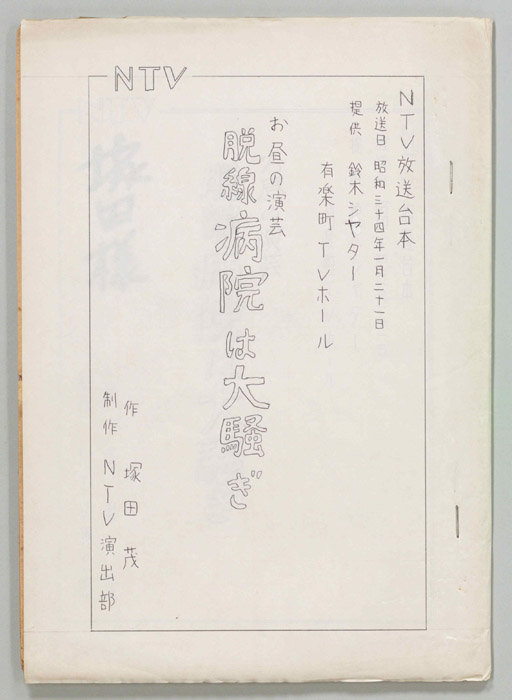 NTV
NTV放送台本
放送日 昭和三十四年一月二十一日
提供 鈴木シヤター
有楽町TVホール
お昼の演芸
脱線病院は大騒ぎ
作 塚田茂
制作 NTV演出部